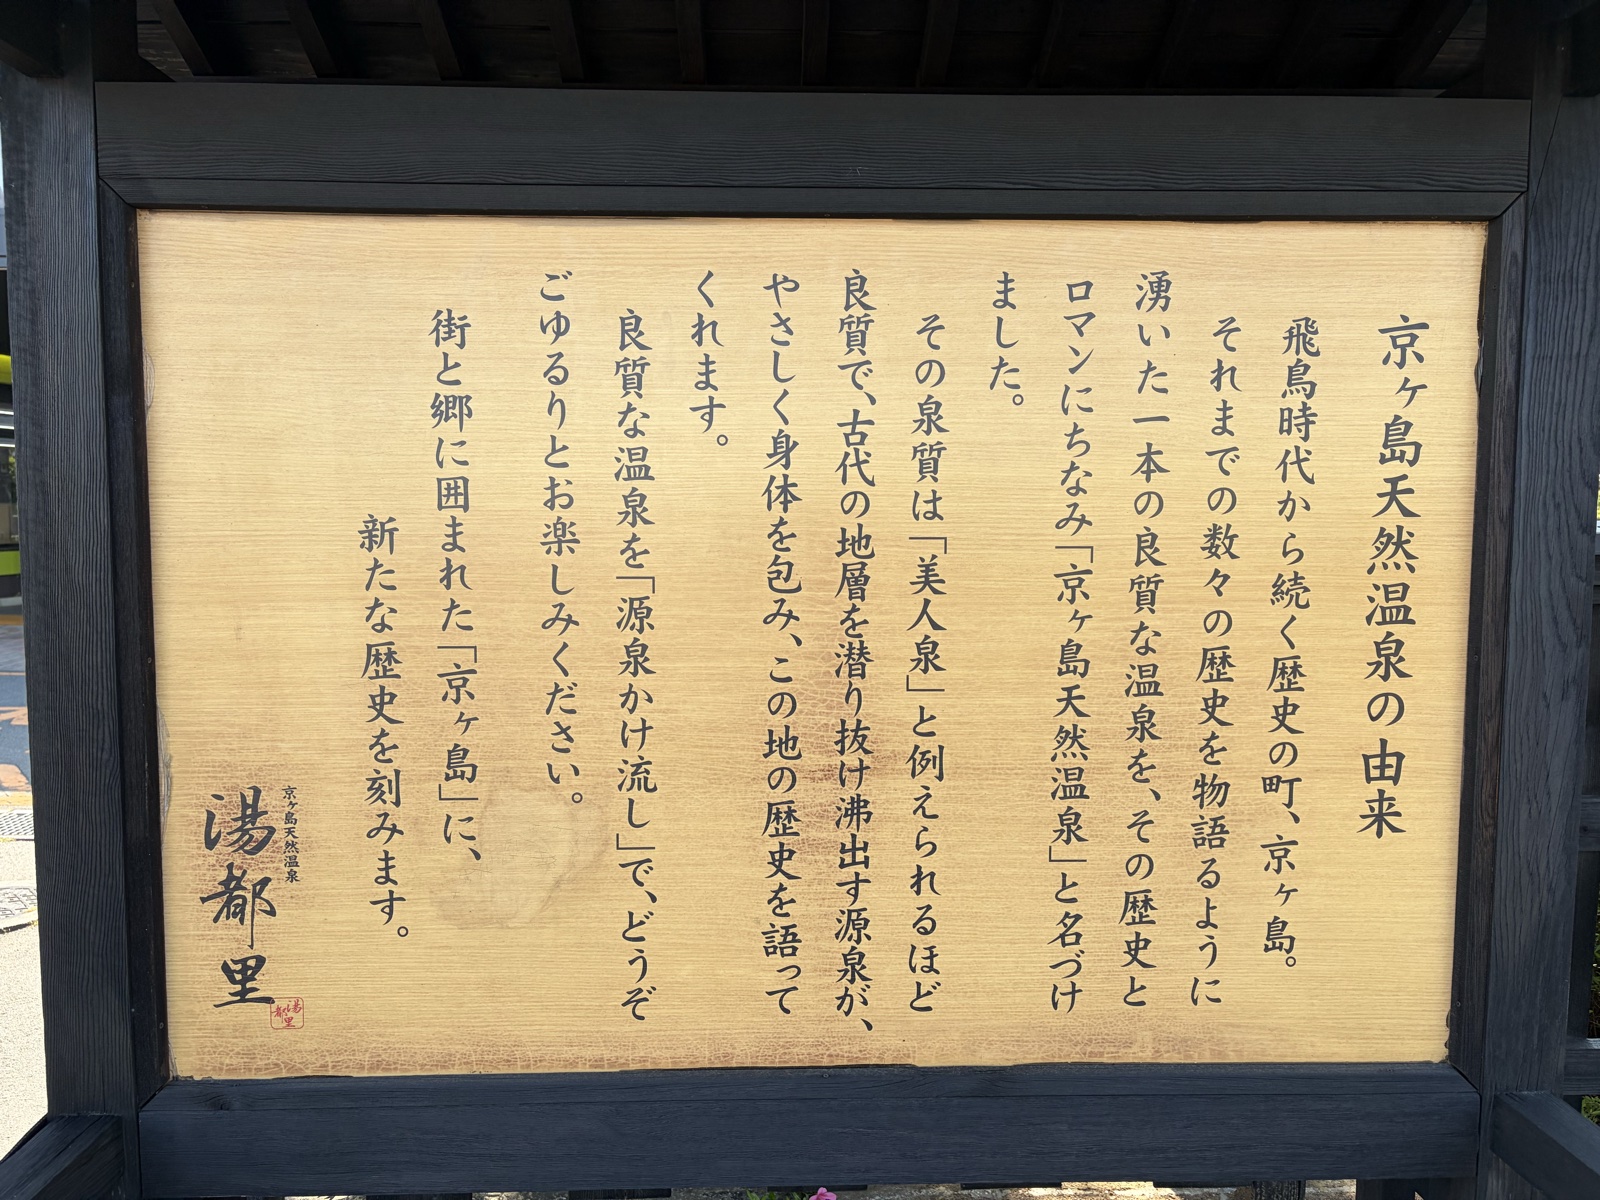 京ヶ島天然温泉の由来
飛鳥時代から続く歴史の町、京ヶ島。
それまでの数々の歴史を物語るように
湧いた一本の良質な温泉を、その歴史と
ロマンにちなみ「京ヶ島天然温泉」と名づけ
ました。
その泉質は「美人泉」と例えられるほど
良質で、古代の地層を潜り抜け沸出す源泉が、
やさしく身体を包み、この地の歴史を語って
くれます。
良質な温泉を「源泉かけ流し」で、どうぞ
ごゆるりとお楽しみください。
街と郷に囲まれた「京ヶ島」に、
新たな歴史を刻みます。
京ヶ島天然温泉
湯都里
湯都里